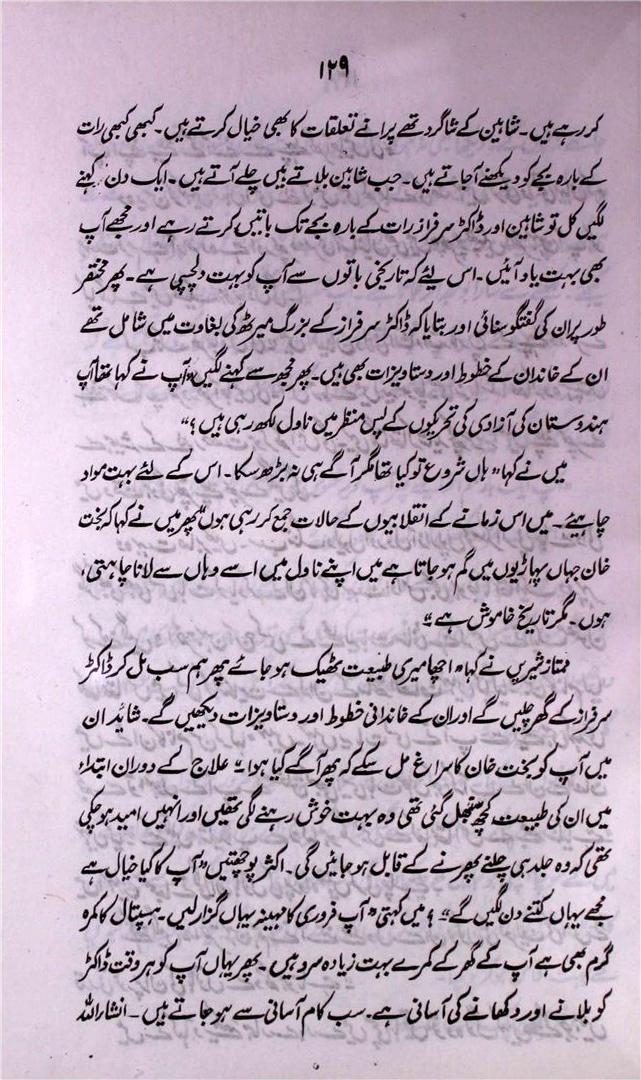 ۱۲۹
کر رہے ہیں۔ شاہین کے شاگرد تھے پرانے تعلقات کا بھی خیال کرتے ہیں۔ کبھی کبھی رات
کے بارہ بجے کو دیکھنے آجاتے ہیں۔ جب شاہین بلاتے ہیں چلے آتے ہیں۔ ایک دن کہنے
لگیں کل تو شاہین اور ڈاکٹر سرفراز رات کے بارہ بجے تک باتیں کرتے رہے اور مجھے آپ
بھی بہت یاد آئیں۔ اس لیئے کہ تاریخی باتوں سے آپ کو بہت دلچسپی ہے۔ پھر مختصر
طور پر ان کی گفتگو سنائی اور بتایا کہ ڈاکٹر سرفراز کے بزرگ میرٹھ کی بغاوت میں شامل تھے
ان کے خاندان کے خطوط اور دستاویزات بھی ہیں۔ پھر مجھ سے کہنے لگیں "آپ نے کہا تھا آپ
ہندوستان کی آزادی کی تحریکوں کے پس منظر میں ناول لکھ رہی ہیں؟"
میں نے کہا "ہاں شروع تو کیا تھا مگر آگے ہی نہ بڑھ سکا۔ اس کے لئے بہت مواد
چاہیئے۔ میں اس زمانے کے انقلابیوں کے حالات جمع کر رہی ہوں" پھر میں نے کہا کہ بخت
خان جہاں پہاڑیوں میں گم ہو جاتا ہے میں اپنے ناول میں اسے وہاں سے لانا چاہتی
ہوں۔ مگر تاریخ خاموش ہے"
ممتاز شیریں نے کہا "اچھا میری طبیعت ٹھیک ہو جائے پھر ہم سب مل کر ڈاکٹر
سرفراز کے گھر چلیں گے اور ان کے خاندانی خطوط اور دستاویزات دیکھیں گے۔ شائد ان
میں آپ کو بخت خان کا سراغ مل سکے کہ پھر آگے کیا ہوا" علاج کے دوران ابتداء
میں ان کی طبیعت کچھ سنبھل گئی تھی وہ بہت خوش رہنے لگی تھیں اور انہیں امید ہو چکی
تھی کہ وہ جلد ہی چلنے پھرنے کے قابل ہو جائیں گی۔ اکثر پوچھتیں "آپ کا کیا خیال ہے
مجھے یہاں کتنے دن لگیں گے"؟ میں کہتی "آپ فروری کا مہینہ یہاں گزار لیں۔ ہسپتال کا کمرہ
گرم بھی ہے آپ کے گھر کے کمرے بہت زیادہ سرد ہیں۔ پھر یہاں آپ کو ہر وقت ڈاکٹر
کو بلانے اور دکھانے کی آسانی ہے۔ سب کام آسانی سے ہو جاتے ہیں۔ انشاء اللہ